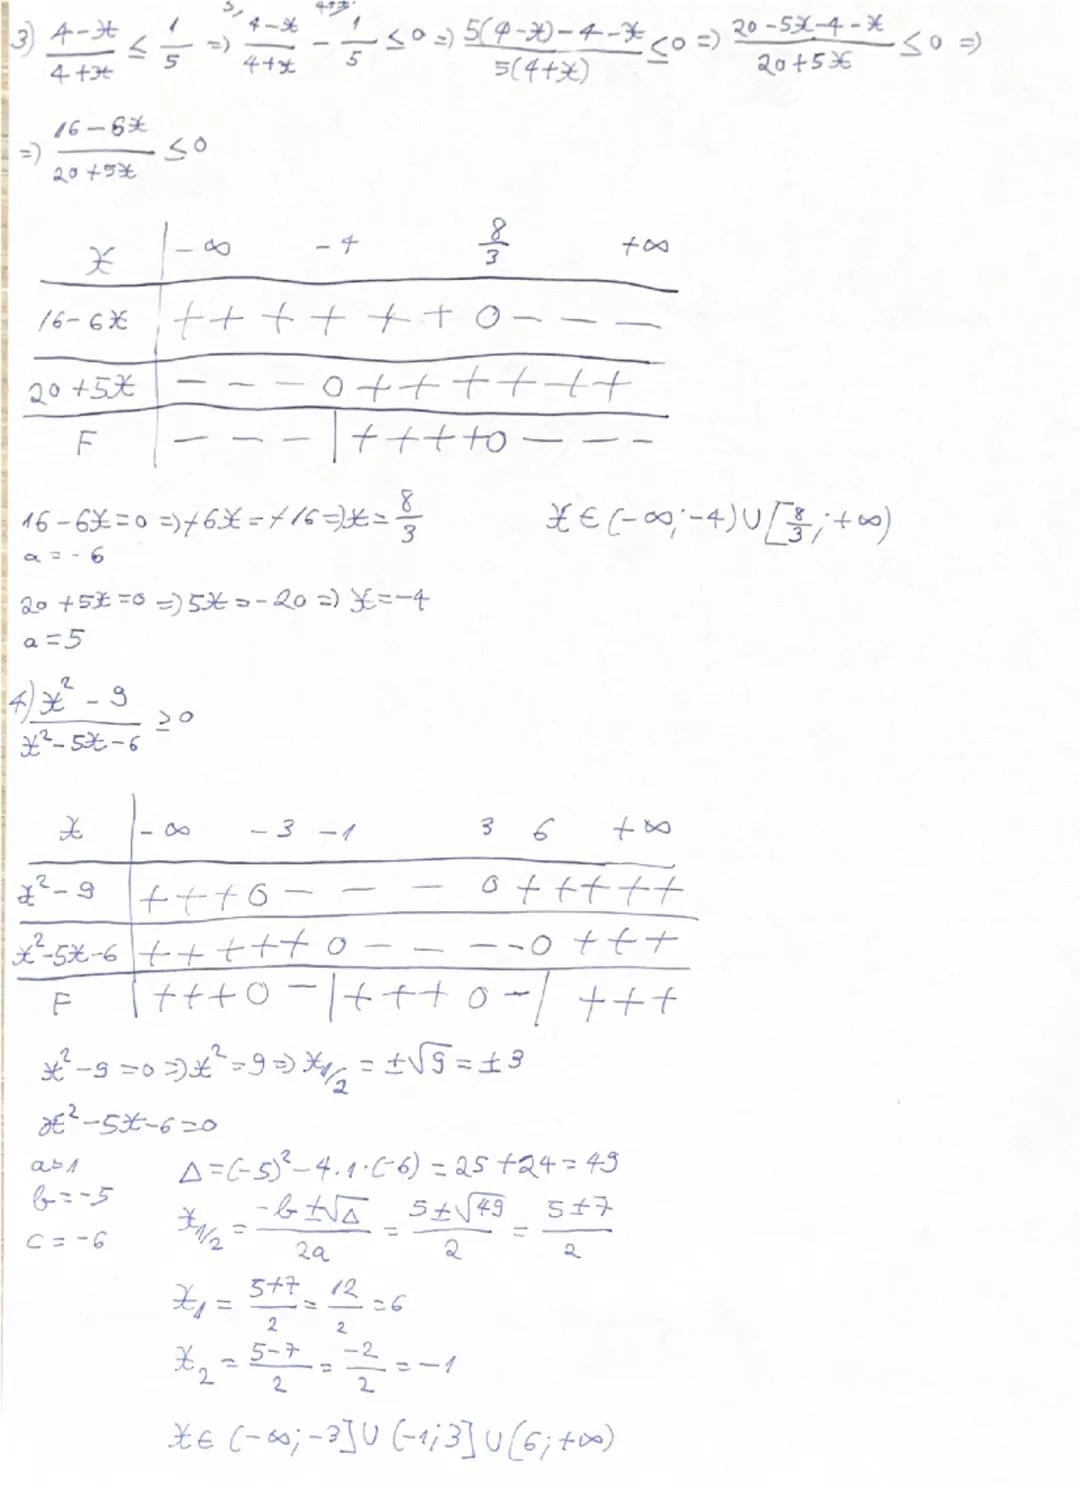 3) (4-x)/(4+x) ≤ 1/5 => 5/ (4-x)/(4+x) - 4+x/ 1/5 ≤ 0 => (5(4-x)-4-x)/(5(4+x)) ≤ 0 => (20-5x-4-x)/(20+5x) ≤ 0 =>
=> (16-6x)/(20+5x) ≤ 0
x | -∞ -4 8/3 +∞
16-6x | + + + + + + 0 - - -
20+5x | - - - 0 + + + + + +
F | - - - | + + + + 0 - - -
16-6x=0 => +6x=+16 => x=8/3 x ∈ (-∞;-4) ∪ [8/3;+∞)
a=-6
20+5x=0 => 5x=-20 => x=-4
a=5
4) (x²-9)/(x²-5x-6) ≥ 0
x | -∞ -3 -1 3 6 +∞
x²-9 | + + + 0 - - - 0 + + + + +
x²-5x-6 | + + + + + 0 - - - - 0 + + +
F | + + + 0 - | + + + 0 - | + + +
x²-9=0 => x²=9 => x₁/₂ = ±√9 = ±3
x²-5x-6=0
a=1 Δ=(-5)²-4.1.(-6) = 25+24=49
b=-5 x₁/₂ = (-b±√Δ)/(2a) = (5±√49)/2 = (5±7)/2
c=-6
x₁ = (5+7)/2 = 12/2 = 6
x₂ = (5-7)/2 = -2/2 = -1
x ∈ (-∞;-3] ∪ (-1;3] ∪ (6;+∞)